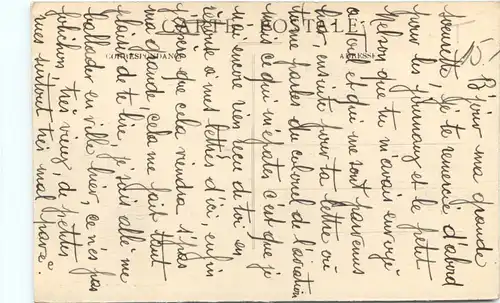 CARTE POSTALE
CORRESPONDANCE
ADRESSE
B'jour ma grande
soeurette. Je te remercie d'abord
pour les journaux et le petit
que tu m'avais envoyé
et qui me sont parvenus
hier, ensuite pour ta lettre où
tu me parles du colonel de l'aviation
mais ce qui m'épate c'est que je
n'ai encore rien reçu de toi en
réponse à mes lettres d'ici, enfin
j'espère que cela viendra s'pas
ma grande, cela me fait tout
plaisir de te lire, je suis allé me
ballader en ville hier, ce n'est pas
folichon, très vieux, de petites
rues surtout très mal pavées.